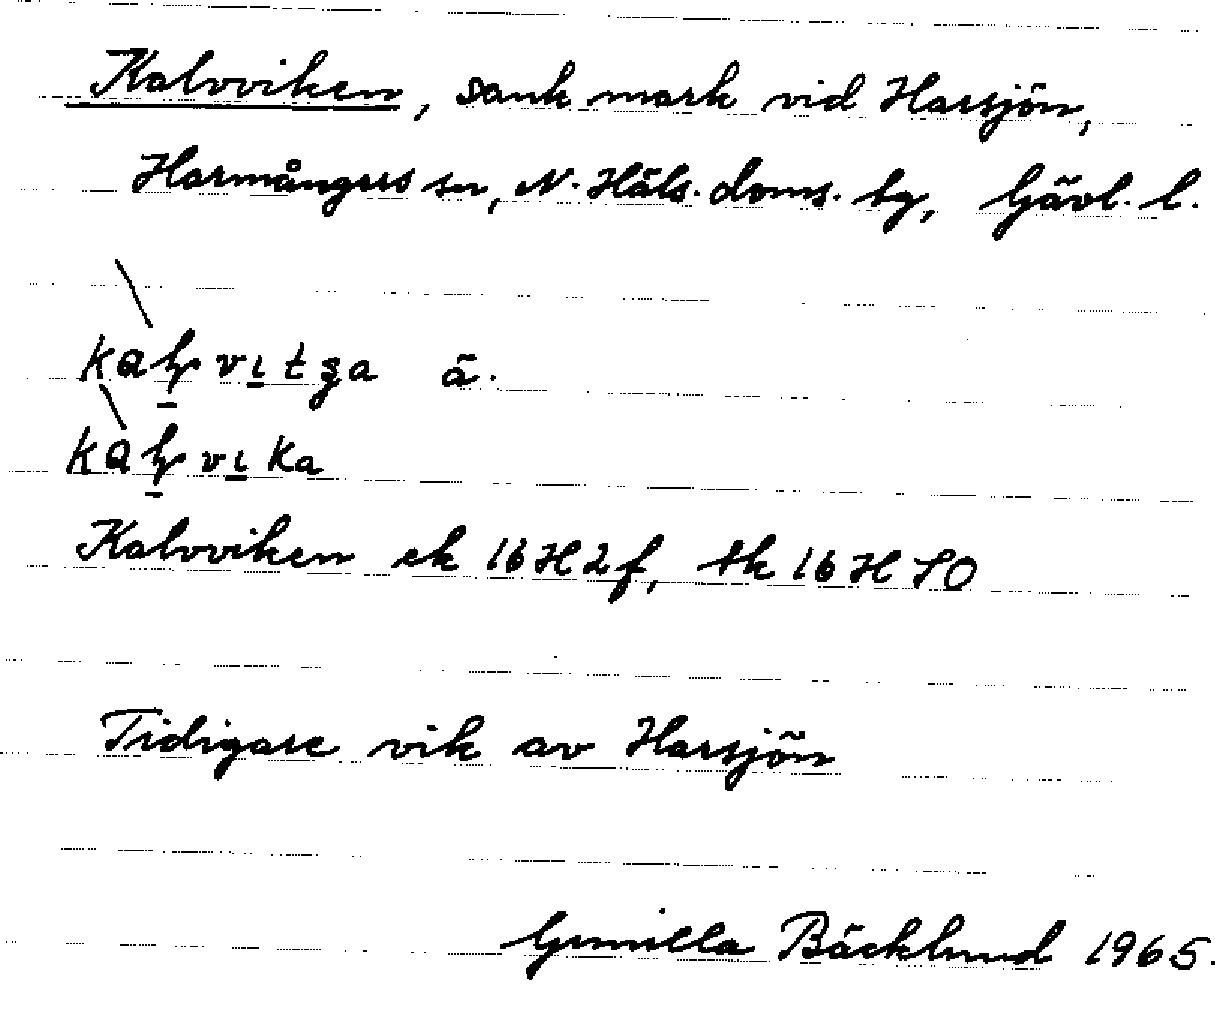 Kalvviken, sank mark vid Harsjön,
Harmångers sn, N. Häls. doms. tg, Gävl. l.
ä.
Kalvviken ek 16H2f, tk 16H SO
Tidigare vik av Harsjön
Gunilla Bäcklund 1965.